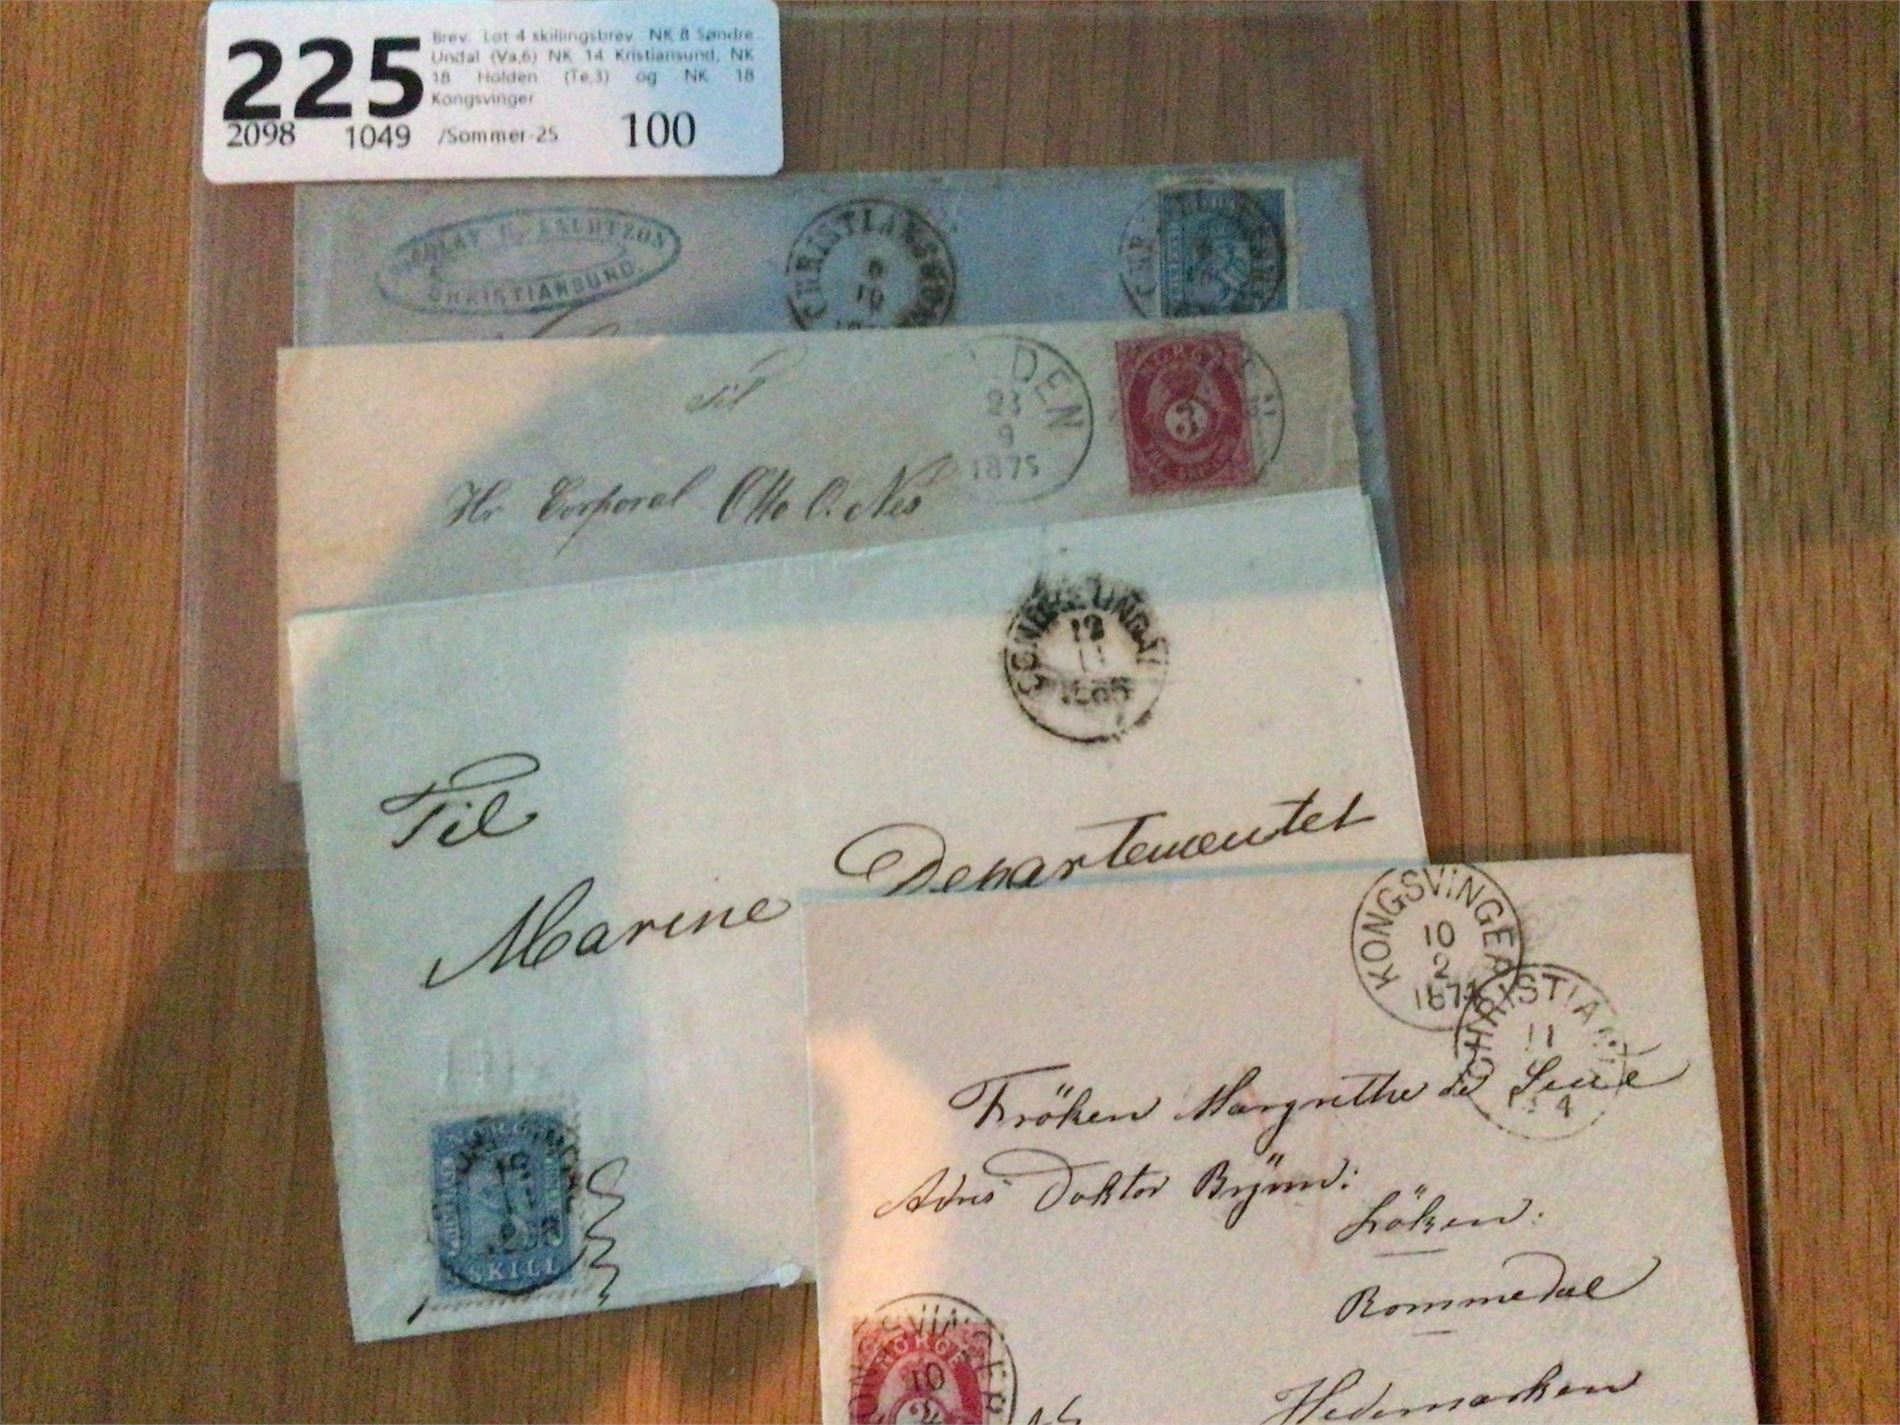 225
Brev. Lot 4 skillingsbrev. NK 8 Søndre
Undal (Va,6) NK 14 Kristiansund, NK
18 Holden (Te,3) og NK 18
Kongsvinger
2098 1049 /Sommer-25 100
CHRISTIANSUND.
CHRISTIANSUND
8
10
Til
DEN
23
9
1875
NORGE
3
Hr Corporal Otto O. Nes
12
11
Til
Marine Departementet
SKILL
KONGSVINGER
10
2
1874
CHRISTIANIA
11
4
Fröken Margrethe de Seue
Adrs Doktor Brÿnn:
Löken:
Rommedal
Hedemarken
KONGSVINGER
NORGE
10
2